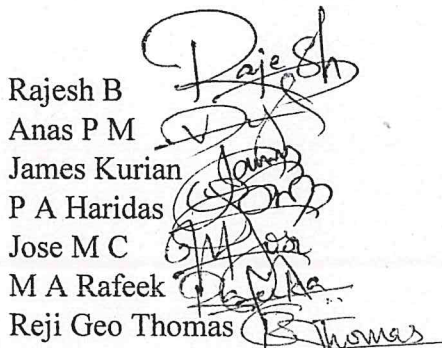 Rajesh B Rajesh
Anas P M
James Kurian
P A Haridas
Jose M C
M A Rafeek
Reji Geo Thomas Thomas